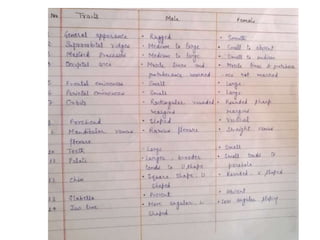 No Traits Male Female
General apperance • Rugged • Smooth
2. Supraorbital ridges • Medium to large • Small to absent
3. Mastoid processes • Medium to large • Small to medium
4. Occipital area • Muscle lines and • Muscle lines & protuberance
protuberance marked not marked
5. Frontal eminences • Small • Large
6. Parietal eminences • Small • Large
7. Orbits • Rectangular rounded • Rounded sharp
margins margins
Forehead • Sloped • Vertical
Mandibular ramus • Ramus flexure • Straight ramus
flexure
10. Teeth • Large • Small
11. Palate • Larger, broader • Small tends to
tends to U shape parabola
12. Chin • Square shape, U • Rounded, v shaped
Shaped
13. Glabella • Present • Absent
14. Jaw line • More angular, L • Less angular
Shaped